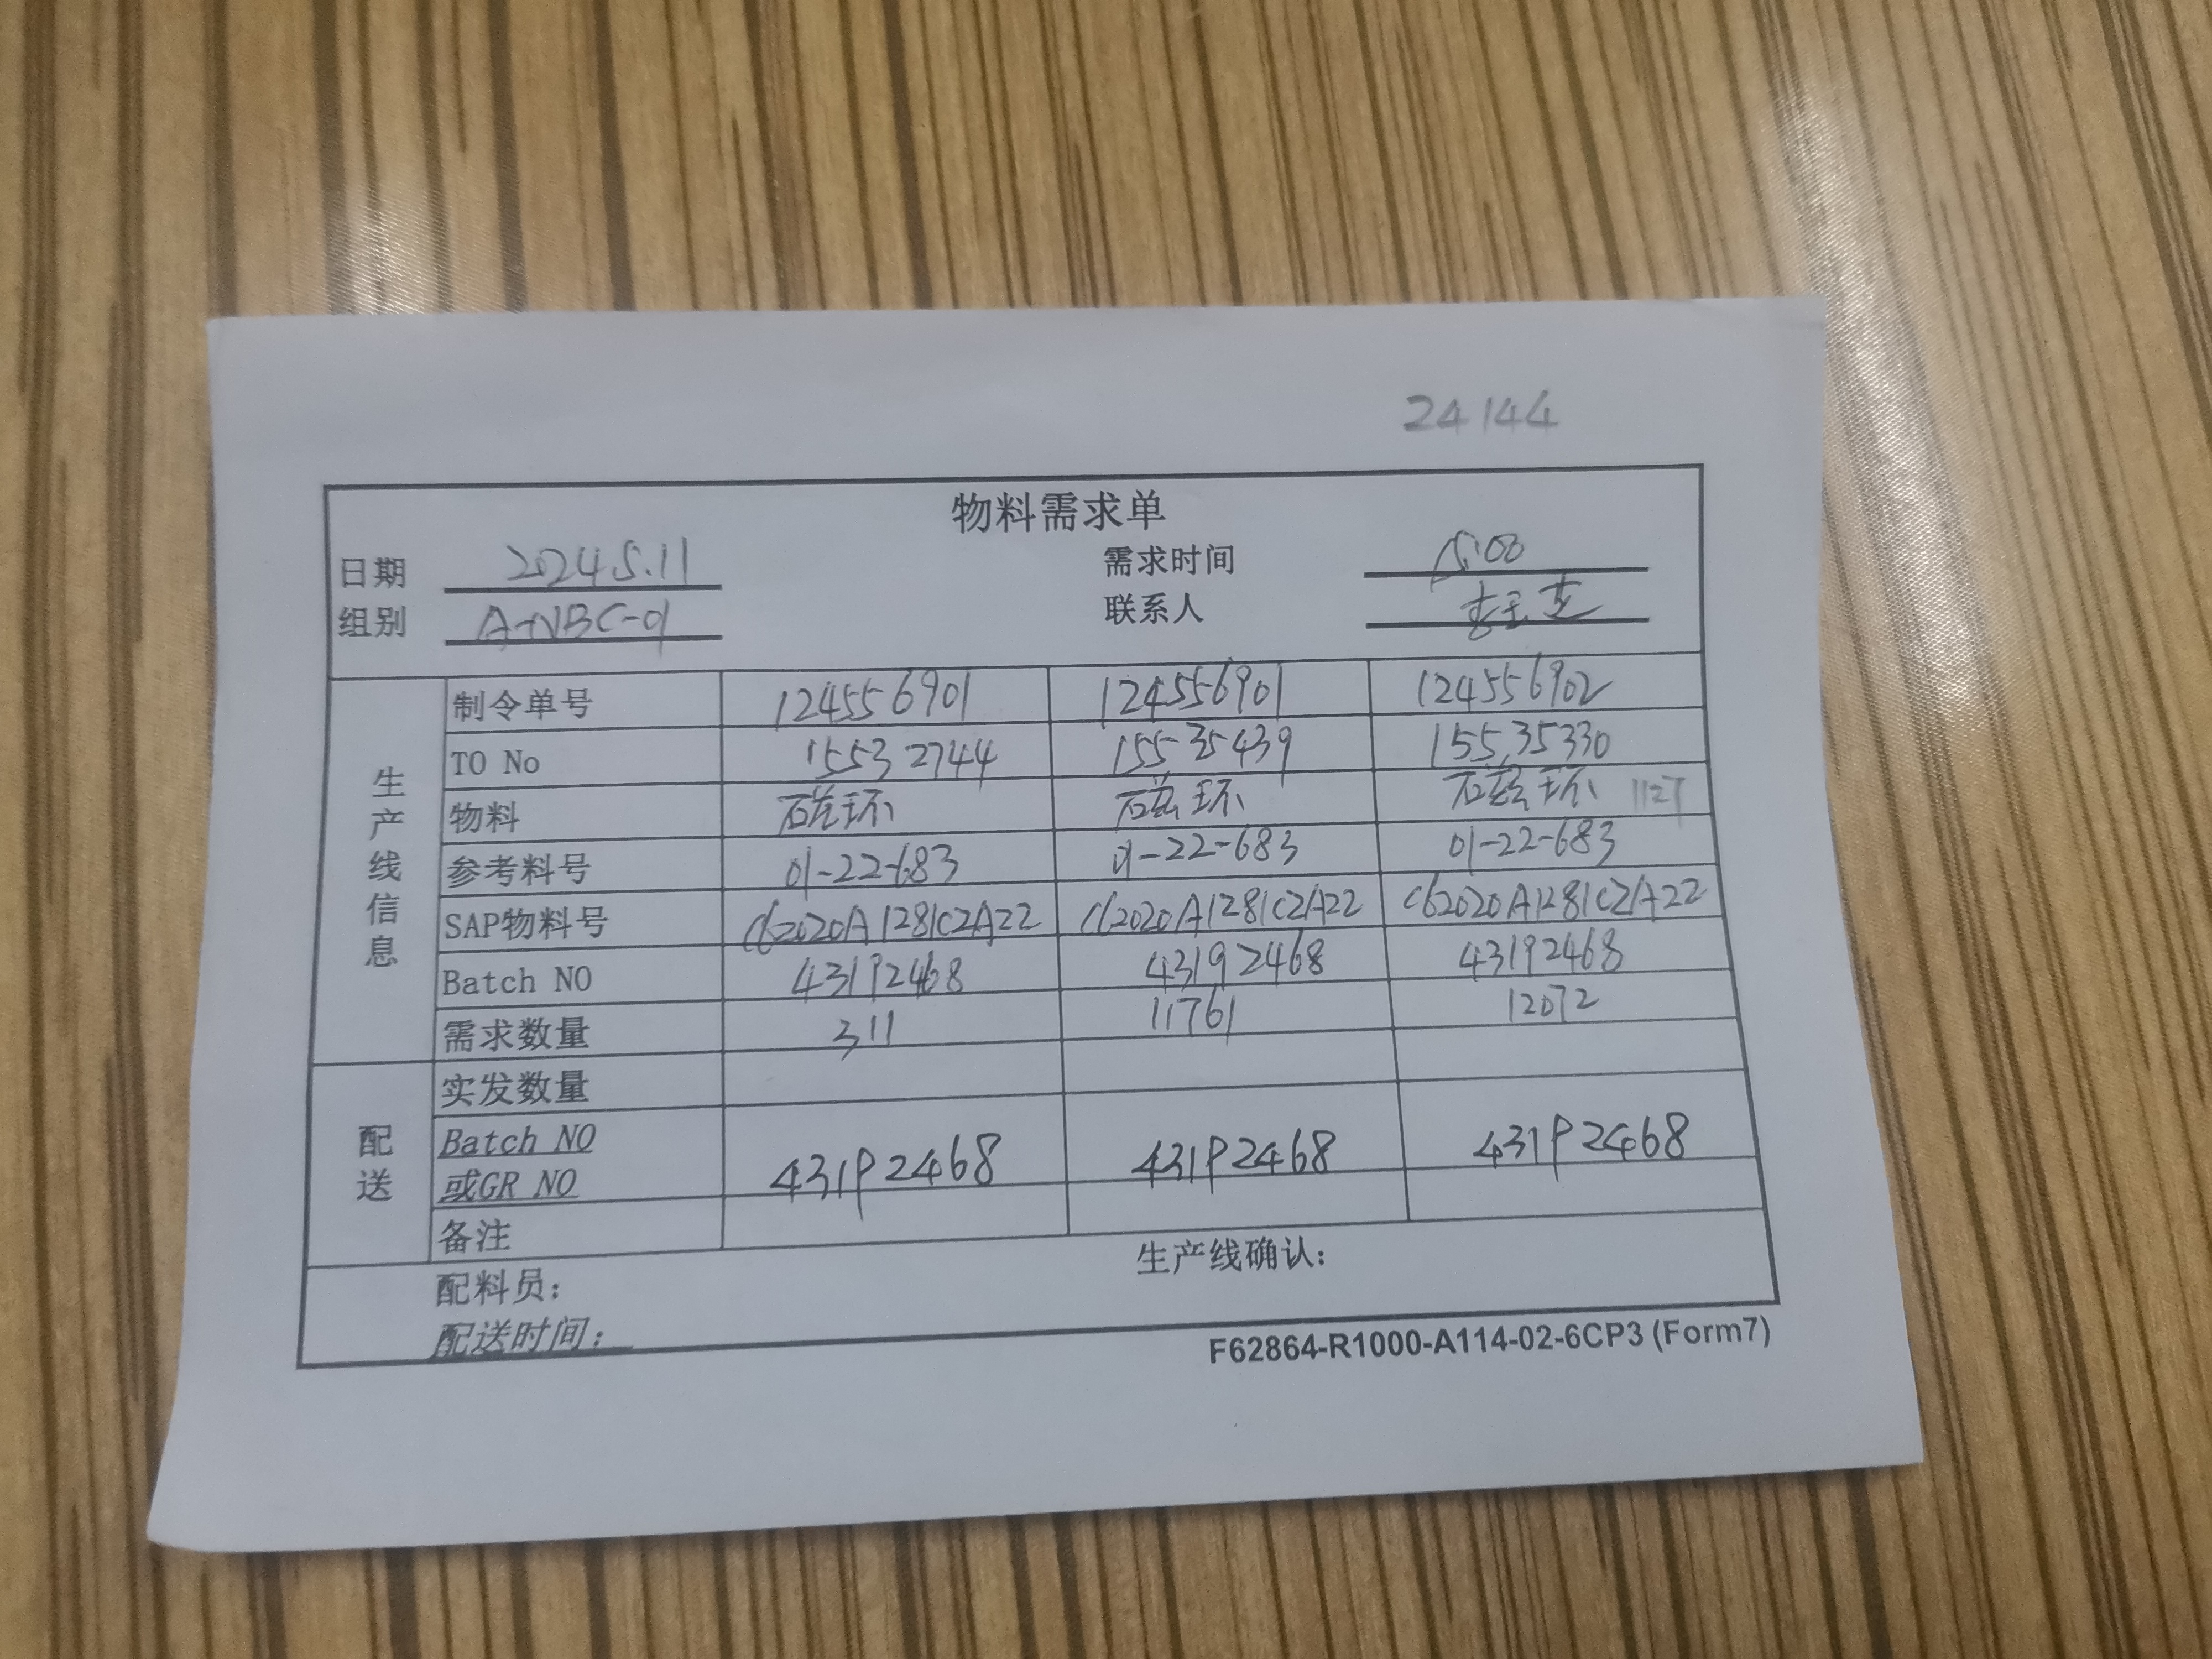 24144
物料需求单
日期 2024.5.11 需求时间 15:00
组别 联系人
生产线信息
制令单号 124556901 124556901 124556902
TO No 15532744 15535439 15535330
物料 磁环 磁环 磁环 1127
参考料号 01-22-683 01-22-683 01-22-683
SAP物料号 C62020A1281C2A22 C62020A1281C2A22 C62020A1281C2A22
Batch NO 431P2468 43192468 431P2468
需求数量 311 11761 12072
配送
实发数量
Batch NO
或GR NO 431P2468 431P2468 431P2468
备注
配料员: 生产线确认:
配送时间:
F62864-R1000-A114-02-6CP3 (Form7)